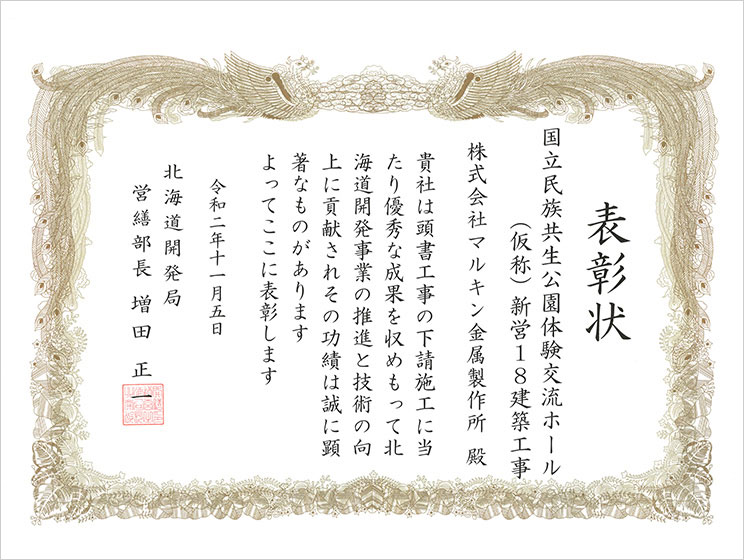 表彰状
国立民族共生公園体験交流ホール
（仮称）新営１８建築工事
株式会社マルキン金属製作所 殿
貴社は頭書工事の下請施工に当
たり優秀な成果を収めもって北
海道開発事業の推進と技術の向
上に貢献されその功績は誠に顕
著なものがあります
よってここに表彰します
令和二年十一月五日
北海道開発局
営繕部長 増田 正一